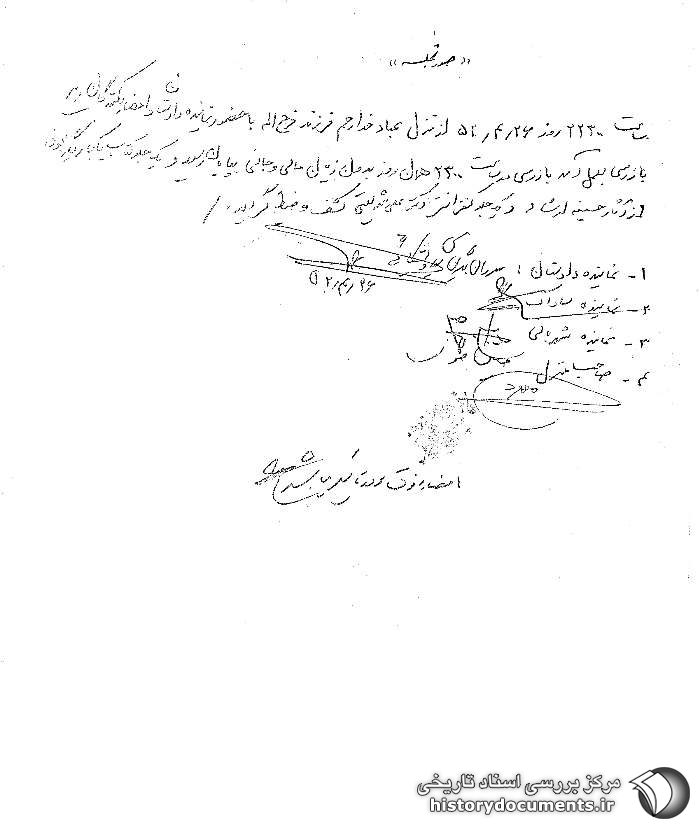 «صورتجلسه»
ساعت ۲۲۳۰ روز ۵۲/۴/۲۶ از منزل عباد خدارحم فرزند فرج اله با حضور نماینده دادستان و امضاء کنندگان زیر
بازرسی بعمل آمد بازرسی در ساعت ۲۳۰۰ همان روز بدون زیان مالی و جانی بپایان رسید و یک جلد کتاب
از حسینیه ارشاد و دو جلد کنفرانس دکتر علی شریعتی کشف و ضبط گردید./
۱- نماینده دادستان :
۵۲/۴/۲۶
۲- نماینده ساواک
۳- نماینده شهربانی
۴- صاحب منزل
امضاء فوق مورد تائید میباشد
مرکز بررسی اسناد تاریخی
historydocuments.ir